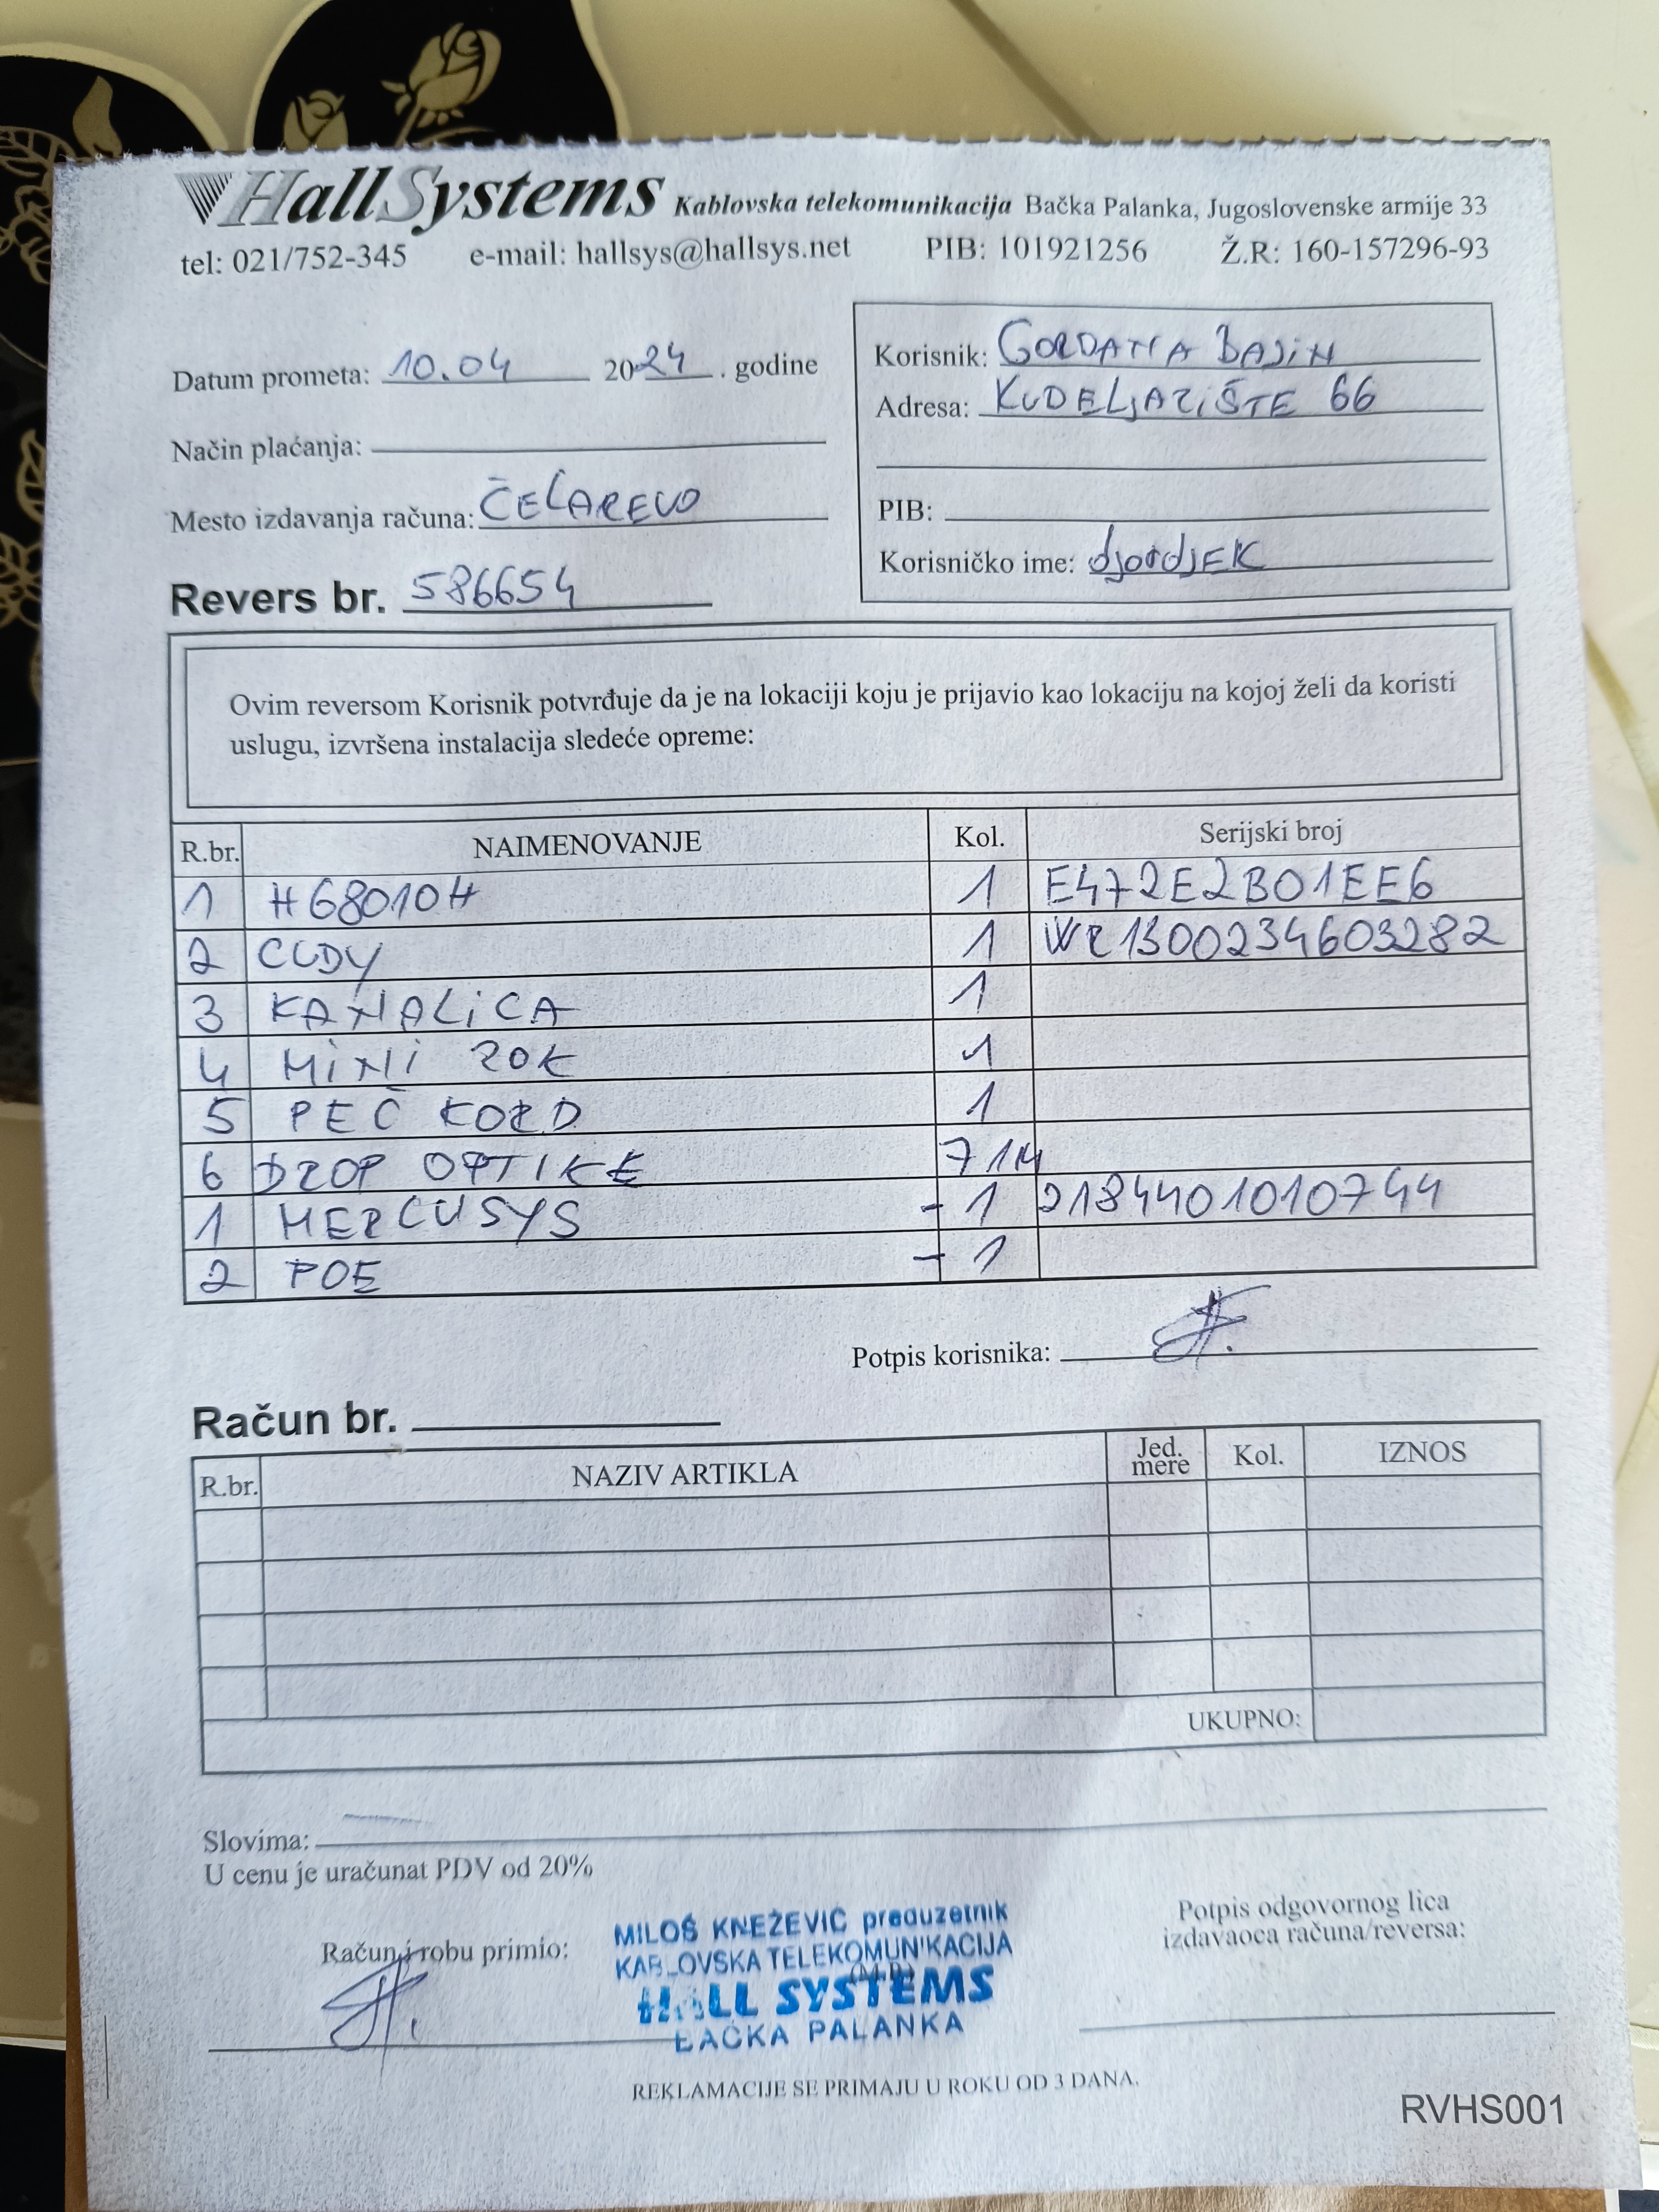 HallSystems Kablovska telekomunikacija Bačka Palanka, Jugoslovenske armije 33
tel: 021/752-345 e-mail: hallsys@hallsys.net PIB: 101921256 Ž.R: 160-157296-93
Datum prometa: 10.04 2024. godine
Način plaćanja:
Mesto izdavanja računa: ČELAREVO
Revers br. 586654
Korisnik: GORDANA BAJIN
Adresa: KUDELJARIŠTE 66
PIB:
Korisničko ime: djordjEK
Ovim reversom Korisnik potvrđuje da je na lokaciji koju je prijavio kao lokaciju na kojoj želi da koristi
uslugu, izvršena instalacija sledeće opreme:
R.br. NAIMENOVANJE Kol. Serijski broj
1 H68010H 1 E472E2B01EE6
2 CUDY 1 WR1300234603282
3 KANALiCA 1
4 MiNi ROK 1
5 PEČ KORD 1
6 DROP OPTIKE 71M
1 MERCUSYS -1 2184401010744
2 POE -1
Potpis korisnika:
Račun br.
R.br. NAZIV ARTIKLA Jed. mere Kol. IZNOS
UKUPNO:
Slovima:
U cenu je uračunat PDV od 20%
Račun i robu primio:
MILOŠ KNEŽEVIĆ preduzetnik
KABLOVSKA TELEKOMUNIKACIJA
(M.P.)
HALL SYSTEMS
BAČKA PALANKA
Potpis odgovornog lica
izdavaoca računa/reversa:
REKLAMACIJE SE PRIMAJU U ROKU OD 3 DANA.
RVHS001